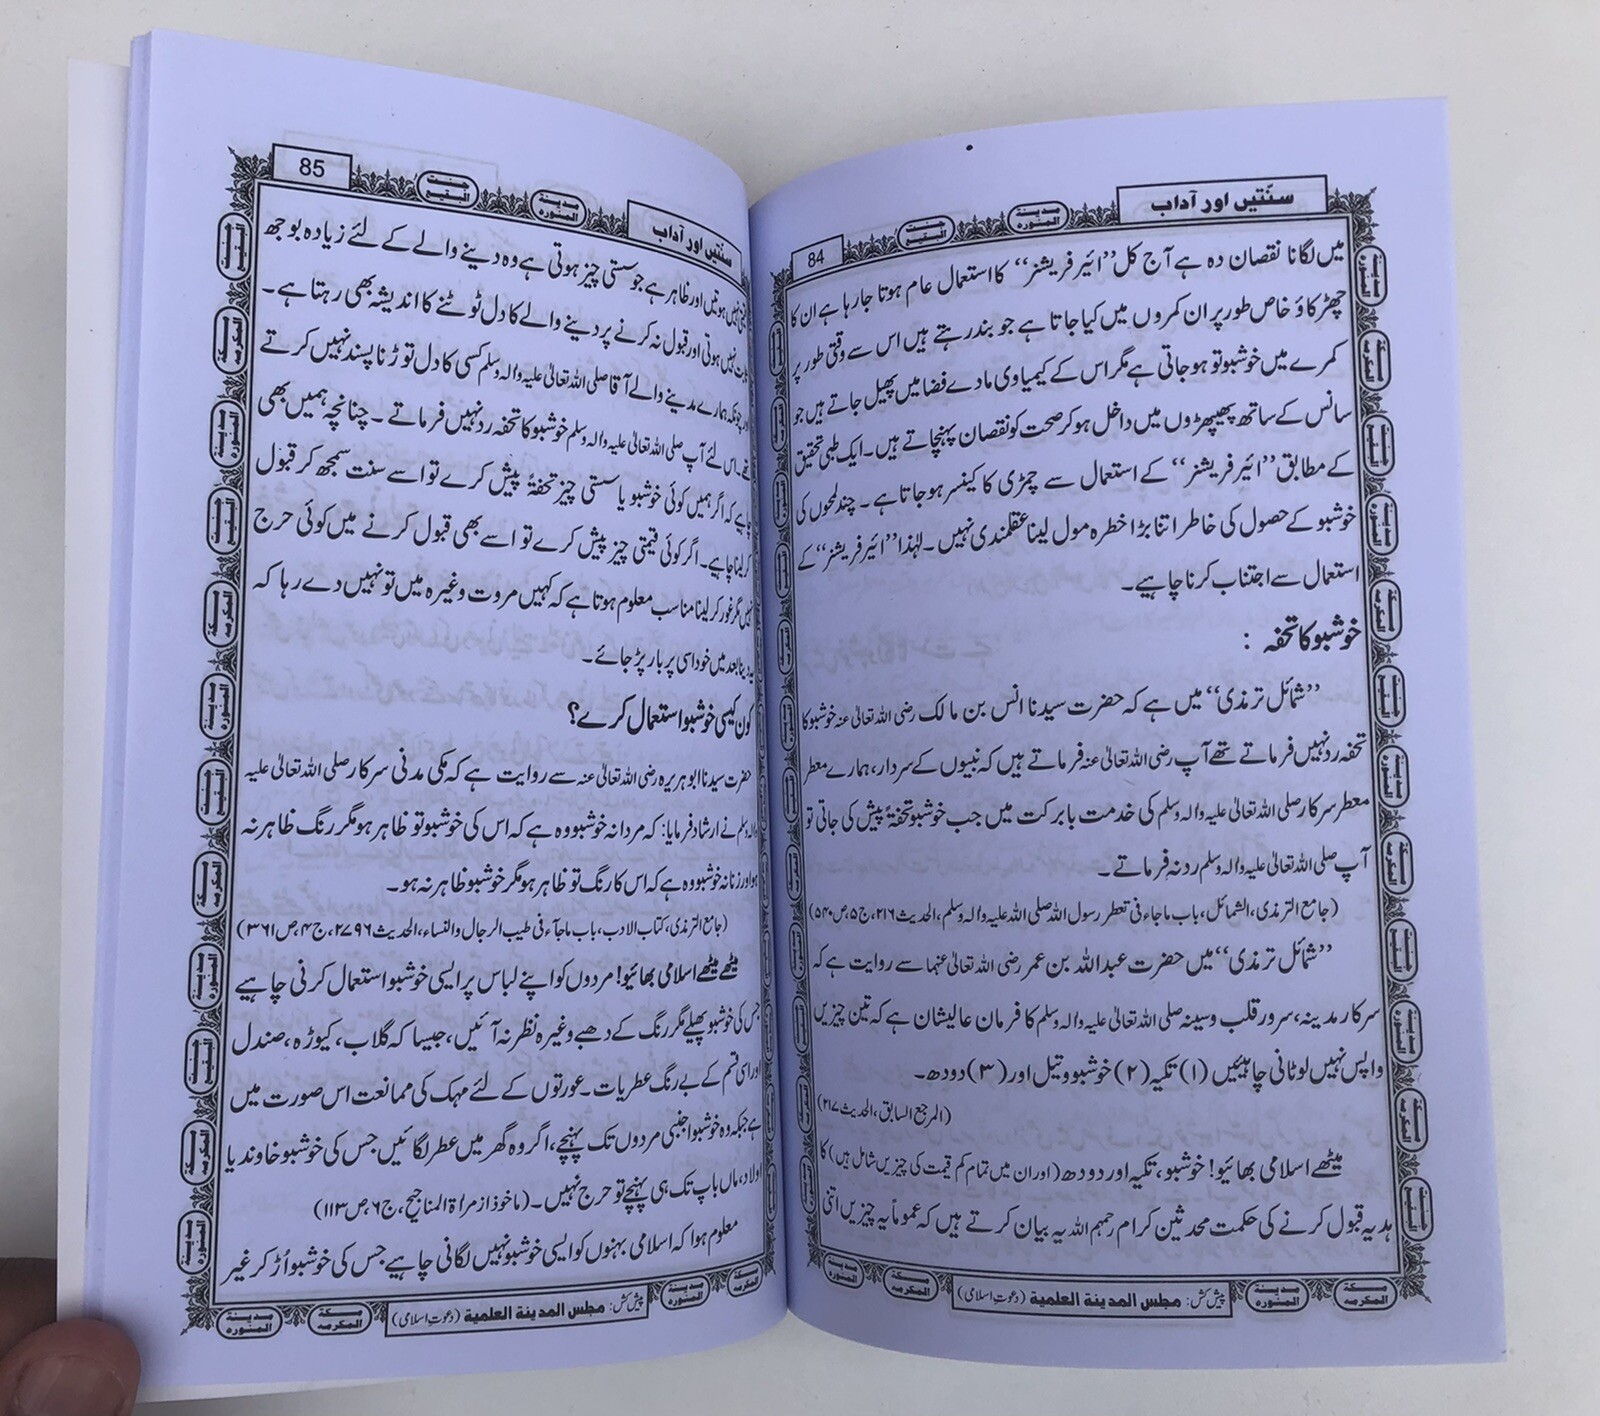 سنّتیں اور آداب
84
میں لگانا نقصان دہ ہے آج کل ’’ائیر فریشنر‘‘ کا استعمال عام ہوتا جا رہا ہے ان کا
چھڑکاؤ خاص طور پر ان کمروں میں کیا جاتا ہے جو بند رہتے ہیں اس سے وقتی طور پر
کمرے میں خوشبو تو ہو جاتی ہے مگر اس کے کیمیاوی مادے فضا میں پھیل جاتے ہیں جو
سانس کے ساتھ پھیپھڑوں میں داخل ہو کر صحت کو نقصان پہنچاتے ہیں۔ ایک طبی تحقیق
کے مطابق ’’ائیر فریشنر‘‘ کے استعمال سے چمڑی کا کینسر ہو جاتا ہے۔ چند لمحوں کی
خوشبو کے حصول کی خاطر اتنا بڑا خطرہ مول لینا عقلمندی نہیں۔ لہٰذا ’’ائیر فریشنر‘‘ کے
استعمال سے اجتناب کرنا چاہیے۔
خوشبو کا تحفہ :
’’شمائل ترمذی‘‘ میں ہے کہ حضرت سیدنا انس بن مالک رضی اللہ تعالیٰ عنہ خوشبو کا
تحفہ رد نہیں فرماتے تھے آپ رضی اللہ تعالیٰ عنہ فرماتے ہیں کہ نبیوں کے سردار، ہمارے معطر
معطر سرکار صلی اللہ تعالیٰ علیہ والہ وسلم کی خدمت بابرکت میں جب خوشبو تحفۃً پیش کی جاتی تو
آپ صلی اللہ تعالیٰ علیہ والہ وسلم رد نہ فرماتے۔
(جامع الترمذی، الشمائل، باب ماجاء فی تعطر رسول اللہ صلی اللہ علیہ والہ وسلم، الحدیث ۲۱۶، ج ۵، ص ۵۴۰)
’’شمائل ترمذی‘‘ میں حضرت عبداللہ بن عمر رضی اللہ تعالیٰ عنہما سے روایت ہے کہ
سرکار مدینہ، سرور قلب وسینہ صلی اللہ تعالیٰ علیہ والہ وسلم کا فرمان عالیشان ہے کہ تین چیزیں
واپس نہیں لوٹانی چاہئیں (۱) تکیہ (۲) خوشبو و تیل اور (۳) دودھ۔
(المرجع السابق، الحدیث ۲۱۷)
میٹھے اسلامی بھائیو! خوشبو، تکیہ اور دودھ (اور ان میں تمام کم قیمت کی چیزیں شامل ہیں) کا
ہدیہ قبول کرنے کی حکمت محدثین کرام رحمہم اللہ یہ بیان کرتے ہیں کہ عموماً یہ چیزیں اتنی
پیش کش: مجلس المدینة العلمیة (دعوتِ اسلامی)
85
سنّتیں اور آداب
نہیں ہوتیں اور ظاہر ہے جو سستی چیز ہوتی ہے وہ دینے والے کے لئے زیادہ بوجھ
نہیں ہوتی اور قبول نہ کرنے پر دینے والے کا دل ٹوٹنے کا اندیشہ بھی رہتا ہے۔
چونکہ ہمارے مدینے والے آقا صلی اللہ تعالیٰ علیہ والہ وسلم کسی کا دل توڑنا پسند نہیں کرتے
اس لئے آپ صلی اللہ تعالیٰ علیہ والہ وسلم خوشبو کا تحفہ رد نہیں فرماتے۔ چنانچہ ہمیں بھی
چاہے کہ اگر ہمیں کوئی خوشبو یا سستی چیز تحفۃً پیش کرے تو اسے سنت سمجھ کر قبول
کر لینا چاہیے۔ اگر کوئی قیمتی چیز پیش کرے تو اسے بھی قبول کرنے میں کوئی حرج
نہیں مگر غور کر لینا مناسب معلوم ہوتا ہے کہ کہیں مروت وغیرہ میں تو نہیں دے رہا کہ
یہ دینا بعد میں خود اسی پر بار پڑ جائے۔
کون کیسی خوشبو استعمال کرے؟
حضرت سیدنا ابو ہریرہ رضی اللہ تعالیٰ عنہ سے روایت ہے کہ مکی مدنی سرکار صلی اللہ تعالیٰ علیہ
والہ وسلم نے ارشاد فرمایا: کہ مردانہ خوشبو وہ ہے کہ اس کی خوشبو تو ظاہر ہو مگر رنگ ظاہر نہ
ہو اور زنانہ خوشبو وہ ہے کہ اس کا رنگ تو ظاہر ہو مگر خوشبو ظاہر نہ ہو۔
(جامع الترمذی، کتاب الادب، باب ماجآء فی طیب الرجال والنساء، الحدیث ۲۷۹۶، ج ۴، ص ۳۶۱)
میٹھے میٹھے اسلامی بھائیو! مردوں کو اپنے لباس پر ایسی خوشبو استعمال کرنی چاہیے
جس کی خوشبو پھیلے مگر رنگ کے دھبے وغیرہ نظر نہ آئیں، جیسا کہ گلاب، کیوڑہ، صندل
اور اسی قسم کے بے رنگ عطریات۔ عورتوں کے لئے مہک کی ممانعت اس صورت میں
ہے جبکہ وہ خوشبو اجنبی مردوں تک پہنچے، اگر وہ گھر میں عطر لگائیں جس کی خوشبو خاوند یا
اولاد، ماں باپ تک ہی پہنچے تو حرج نہیں۔ (ماخوذ از مراۃ المناجیح، ج ۶، ص ۱۱۳)
معلوم ہوا کہ اسلامی بہنوں کو ایسی خوشبو نہیں لگانی چاہیے جس کی خوشبو اُڑ کر غیر
پیش کش: مجلس المدینة العلمیة (دعوتِ اسلامی)